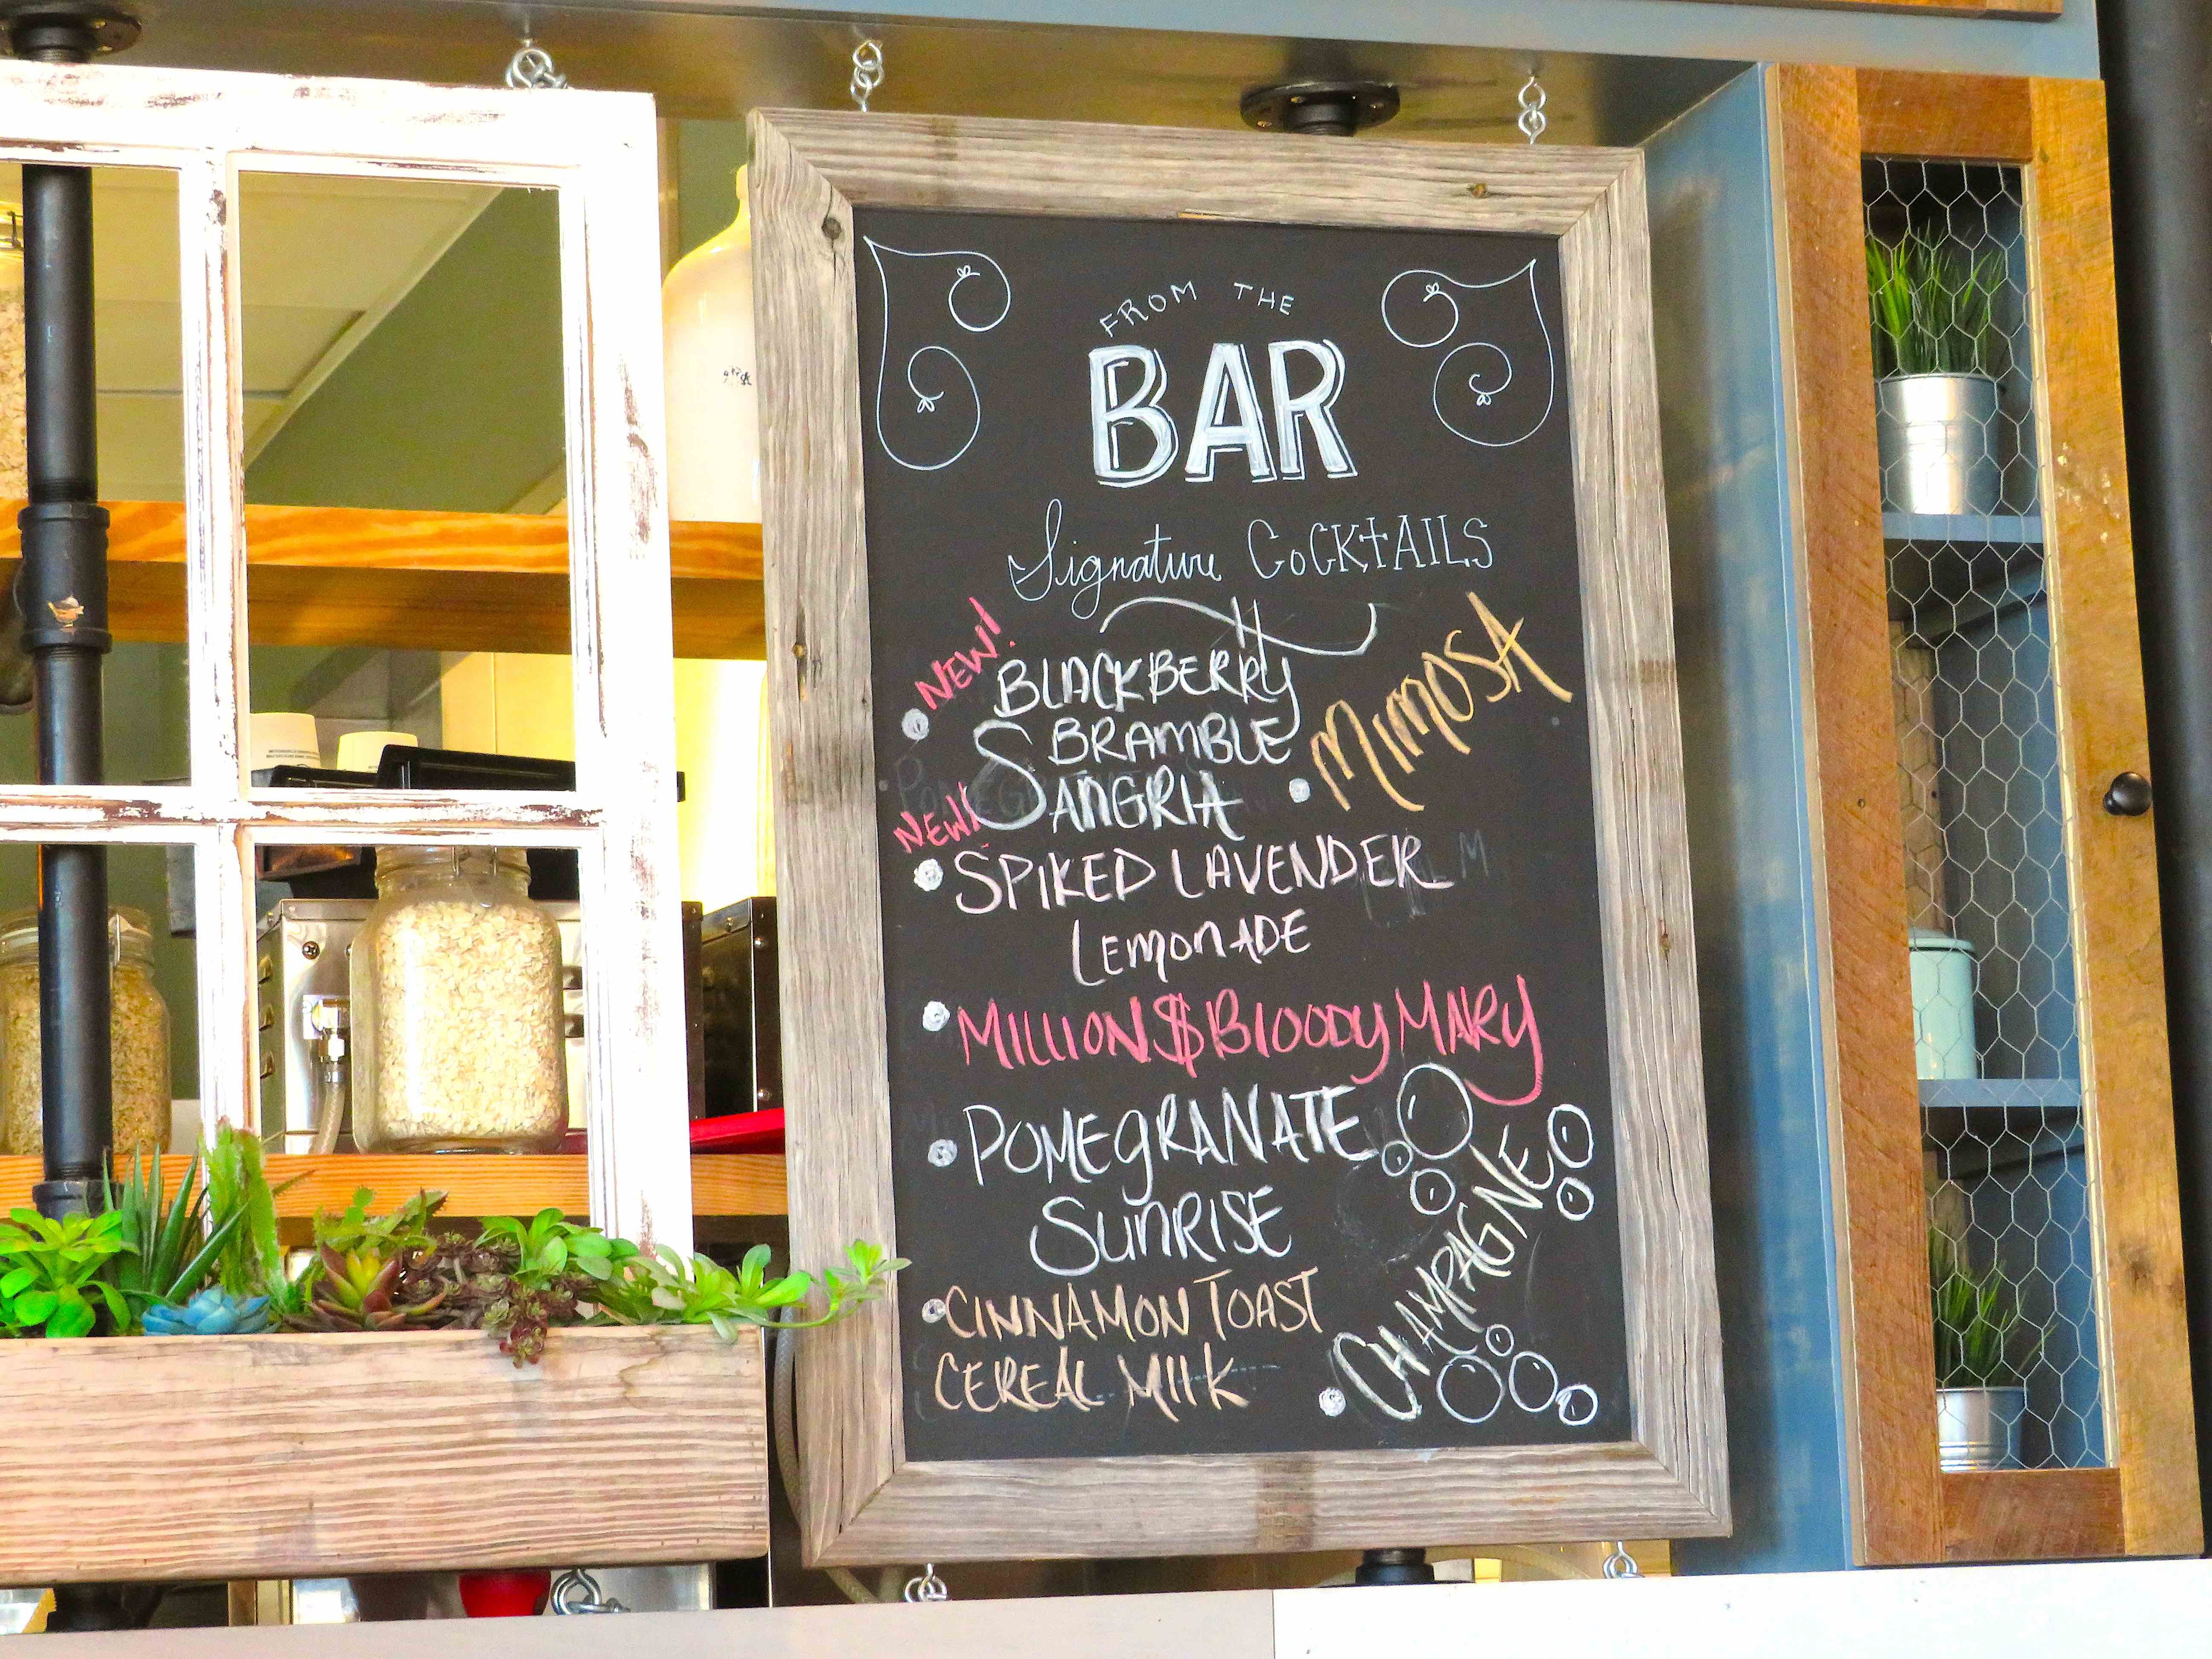 FROM THE
BAR
Signature COCKTAILS
NEW!
BLACKBERRY
BRAMBLE
SANGRIA
MIMOSA
NEW!
SPIKED LAVENDER
LEMONADE
MILLION $ BLOODY MARY
POMEGRANATE
SUNRISE
CINNAMON TOAST
CEREAL MILK
CHAMPAGNE